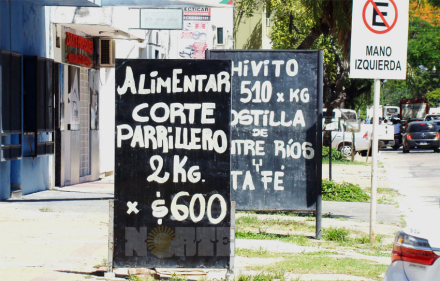 ALIMENTAR
CORTE
PARRILLERO
2 KG.
x $600
NORTE
HIVITO
510 x KG
OSTILLA
DE
NTRE RÍOS
Y
TA FE
E
MANO
IZQUIERDA